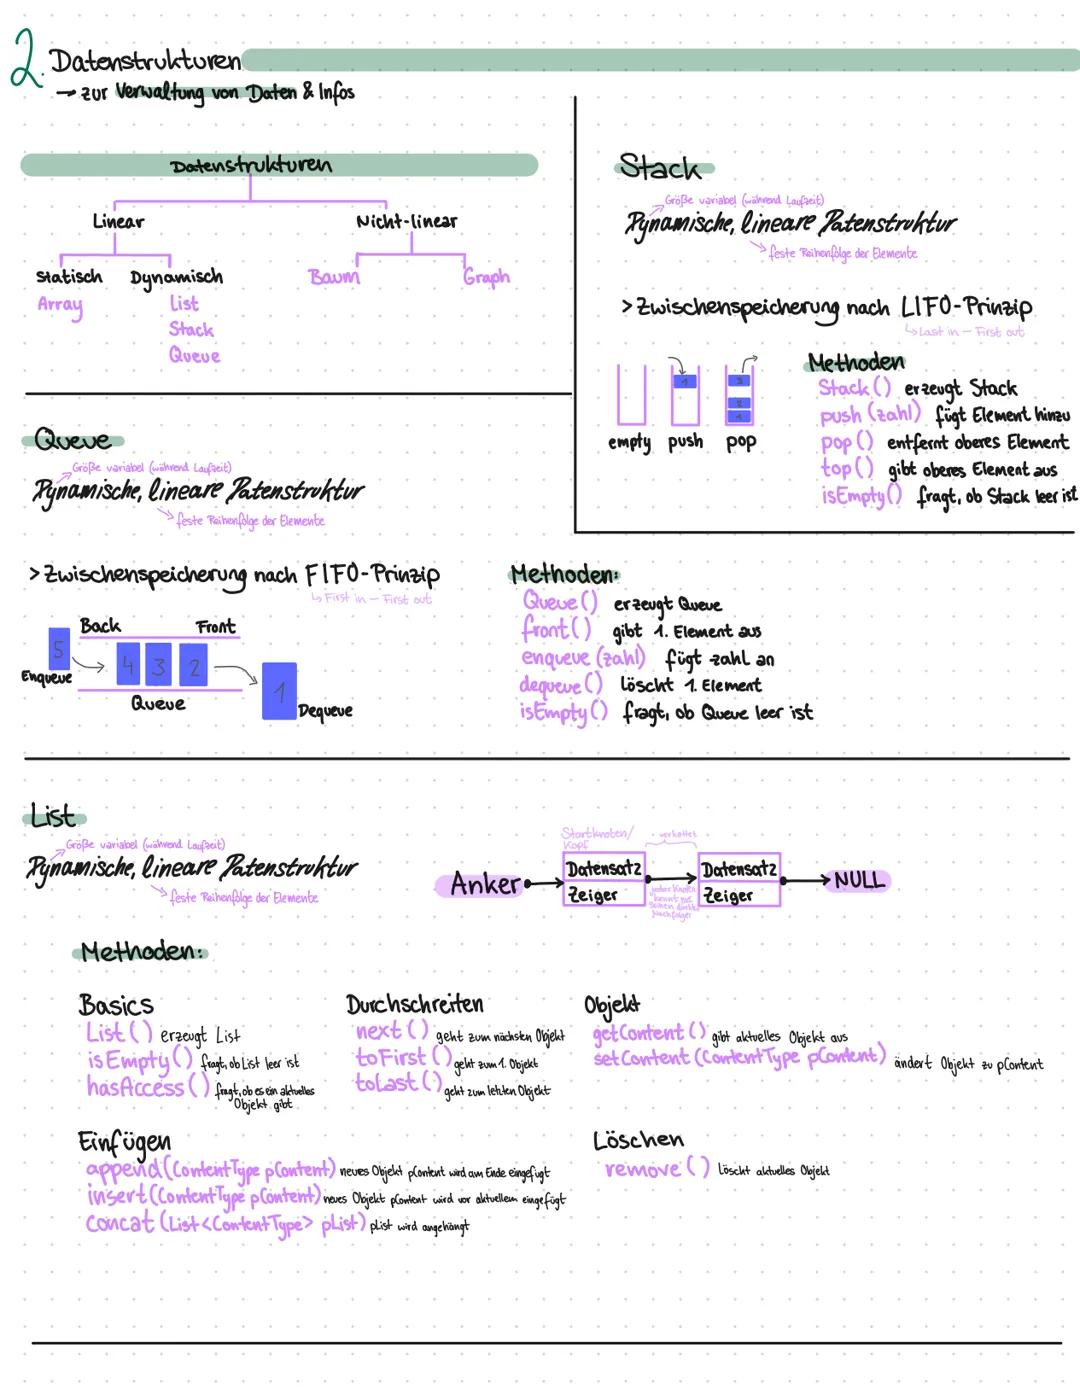 2. Datenstrukturen
→ zur Verwaltung von Daten & Infos
Datenstrukturen
Linear
Nicht-linear
Statisch
Dynamisch
Baum
Graph
Array
List
Stack
Queue
Stack
Größe variabel (während Laufzeit)
Dynamische, lineare Datenstruktur
feste Reihenfolge der Elemente
> Zwischenspeicherung nach LIFO-Prinzip
Last in - First out
1
3
2
1
empty push pop
Methoden
Stack() erzeugt Stack
push (zahl) fügt Element hinzu
pop() entfernt oberes Element
top() gibt oberes Element aus
isEmpty() fragt, ob Stack leer ist
Queue
Größe variabel (während Laufzeit)
Dynamische, lineare Datenstruktur
feste Reihenfolge der Elemente
> Zwischenspeicherung nach FIFO-Prinzip
First in - First out
Back
Front
5
4
3
2
1
Enqueue
Queue
Dequeue
Methoden:
Queue() erzeugt Queue
front() gibt 1. Element aus
enqueue (zahl) fügt zahl an
dequeue() löscht 1. Element
isEmpty() fragt, ob Queue leer ist
List
Größe variabel (während Laufzeit)
Dynamische, lineare Datenstruktur
feste Reihenfolge der Elemente
Startknoten/
Kopf
verkettet
Anker
Datensatz
Zeiger
jeder Knoten
kennt nur
seinen direkten
Nachfolger
Datensatz
Zeiger
NULL
Methoden:
Basics
List() erzeugt List
isEmpty() fragt, ob List leer ist
hasAccess() fragt, ob es ein aktuelles
Objekt gibt
Durchschreiten
next() geht zum nächsten Objekt
toFirst() geht zum 1. Objekt
toLast() geht zum letzten Objekt
Objekt
getContent() gibt aktuelles Objekt aus
setContent (ContentType pContent) ändert Objekt zu pContent
Einfügen
append (ContentType pContent) neues Objekt pContent wird am Ende eingefügt
insert (ContentType pContent) neues Objekt pContent wird vor aktuellem eingefügt
concat (List<ContentType> pList) pList wird angehängt
Löschen
remove() löscht aktuelles Objekt